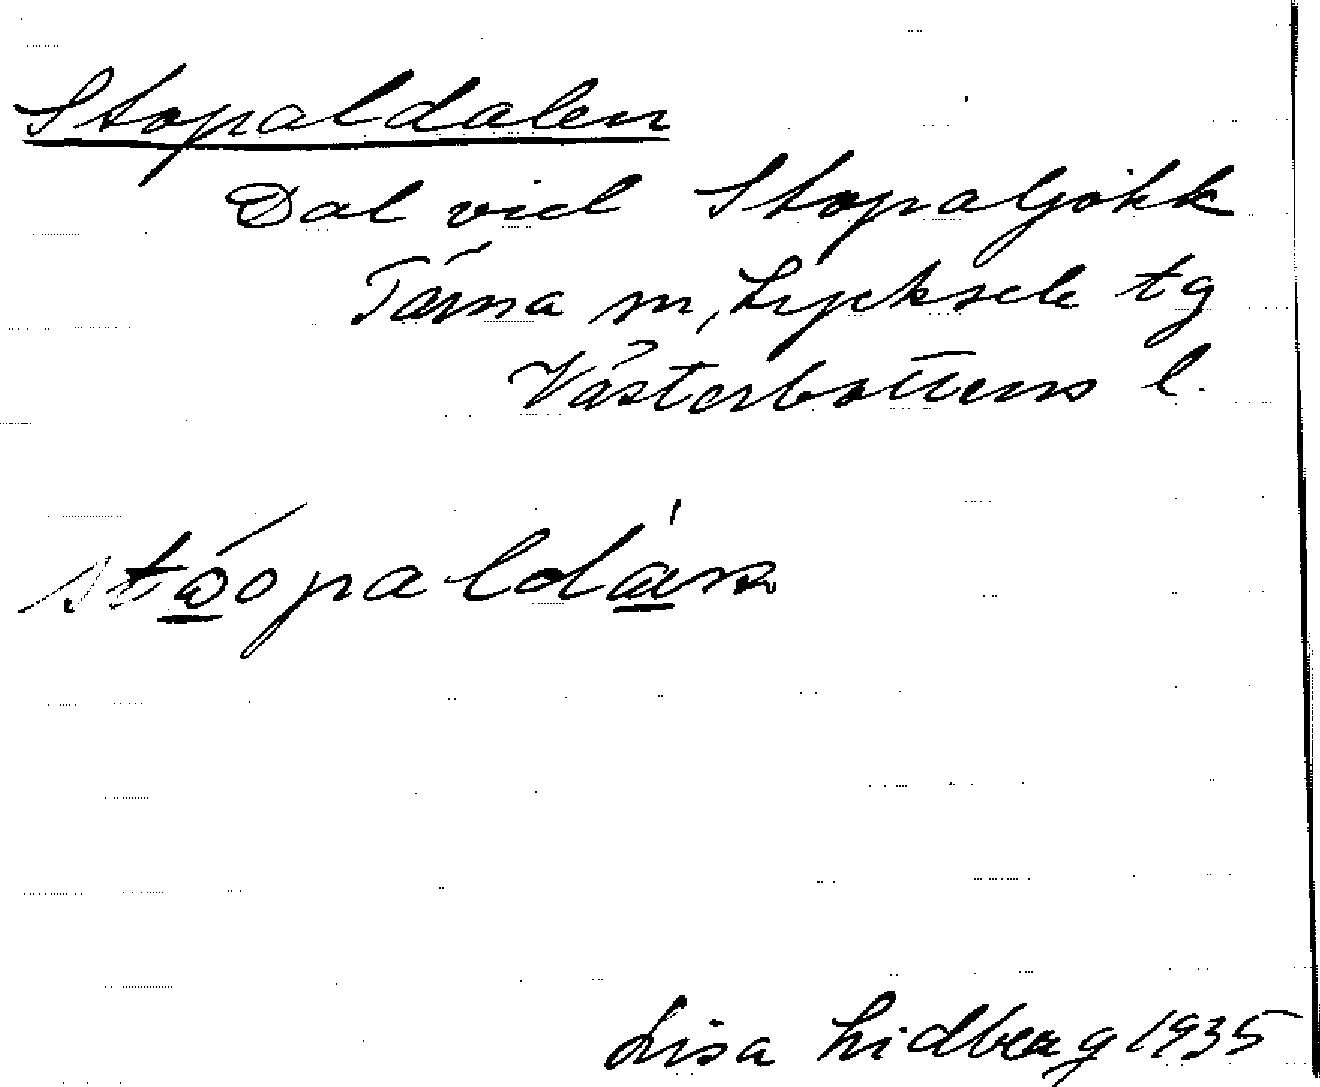 Stopaldalen
Dal vid Stopaljokk
Tärna sn, Lycksele tg
Västerbottens l.
Lisa Lidberg 1935